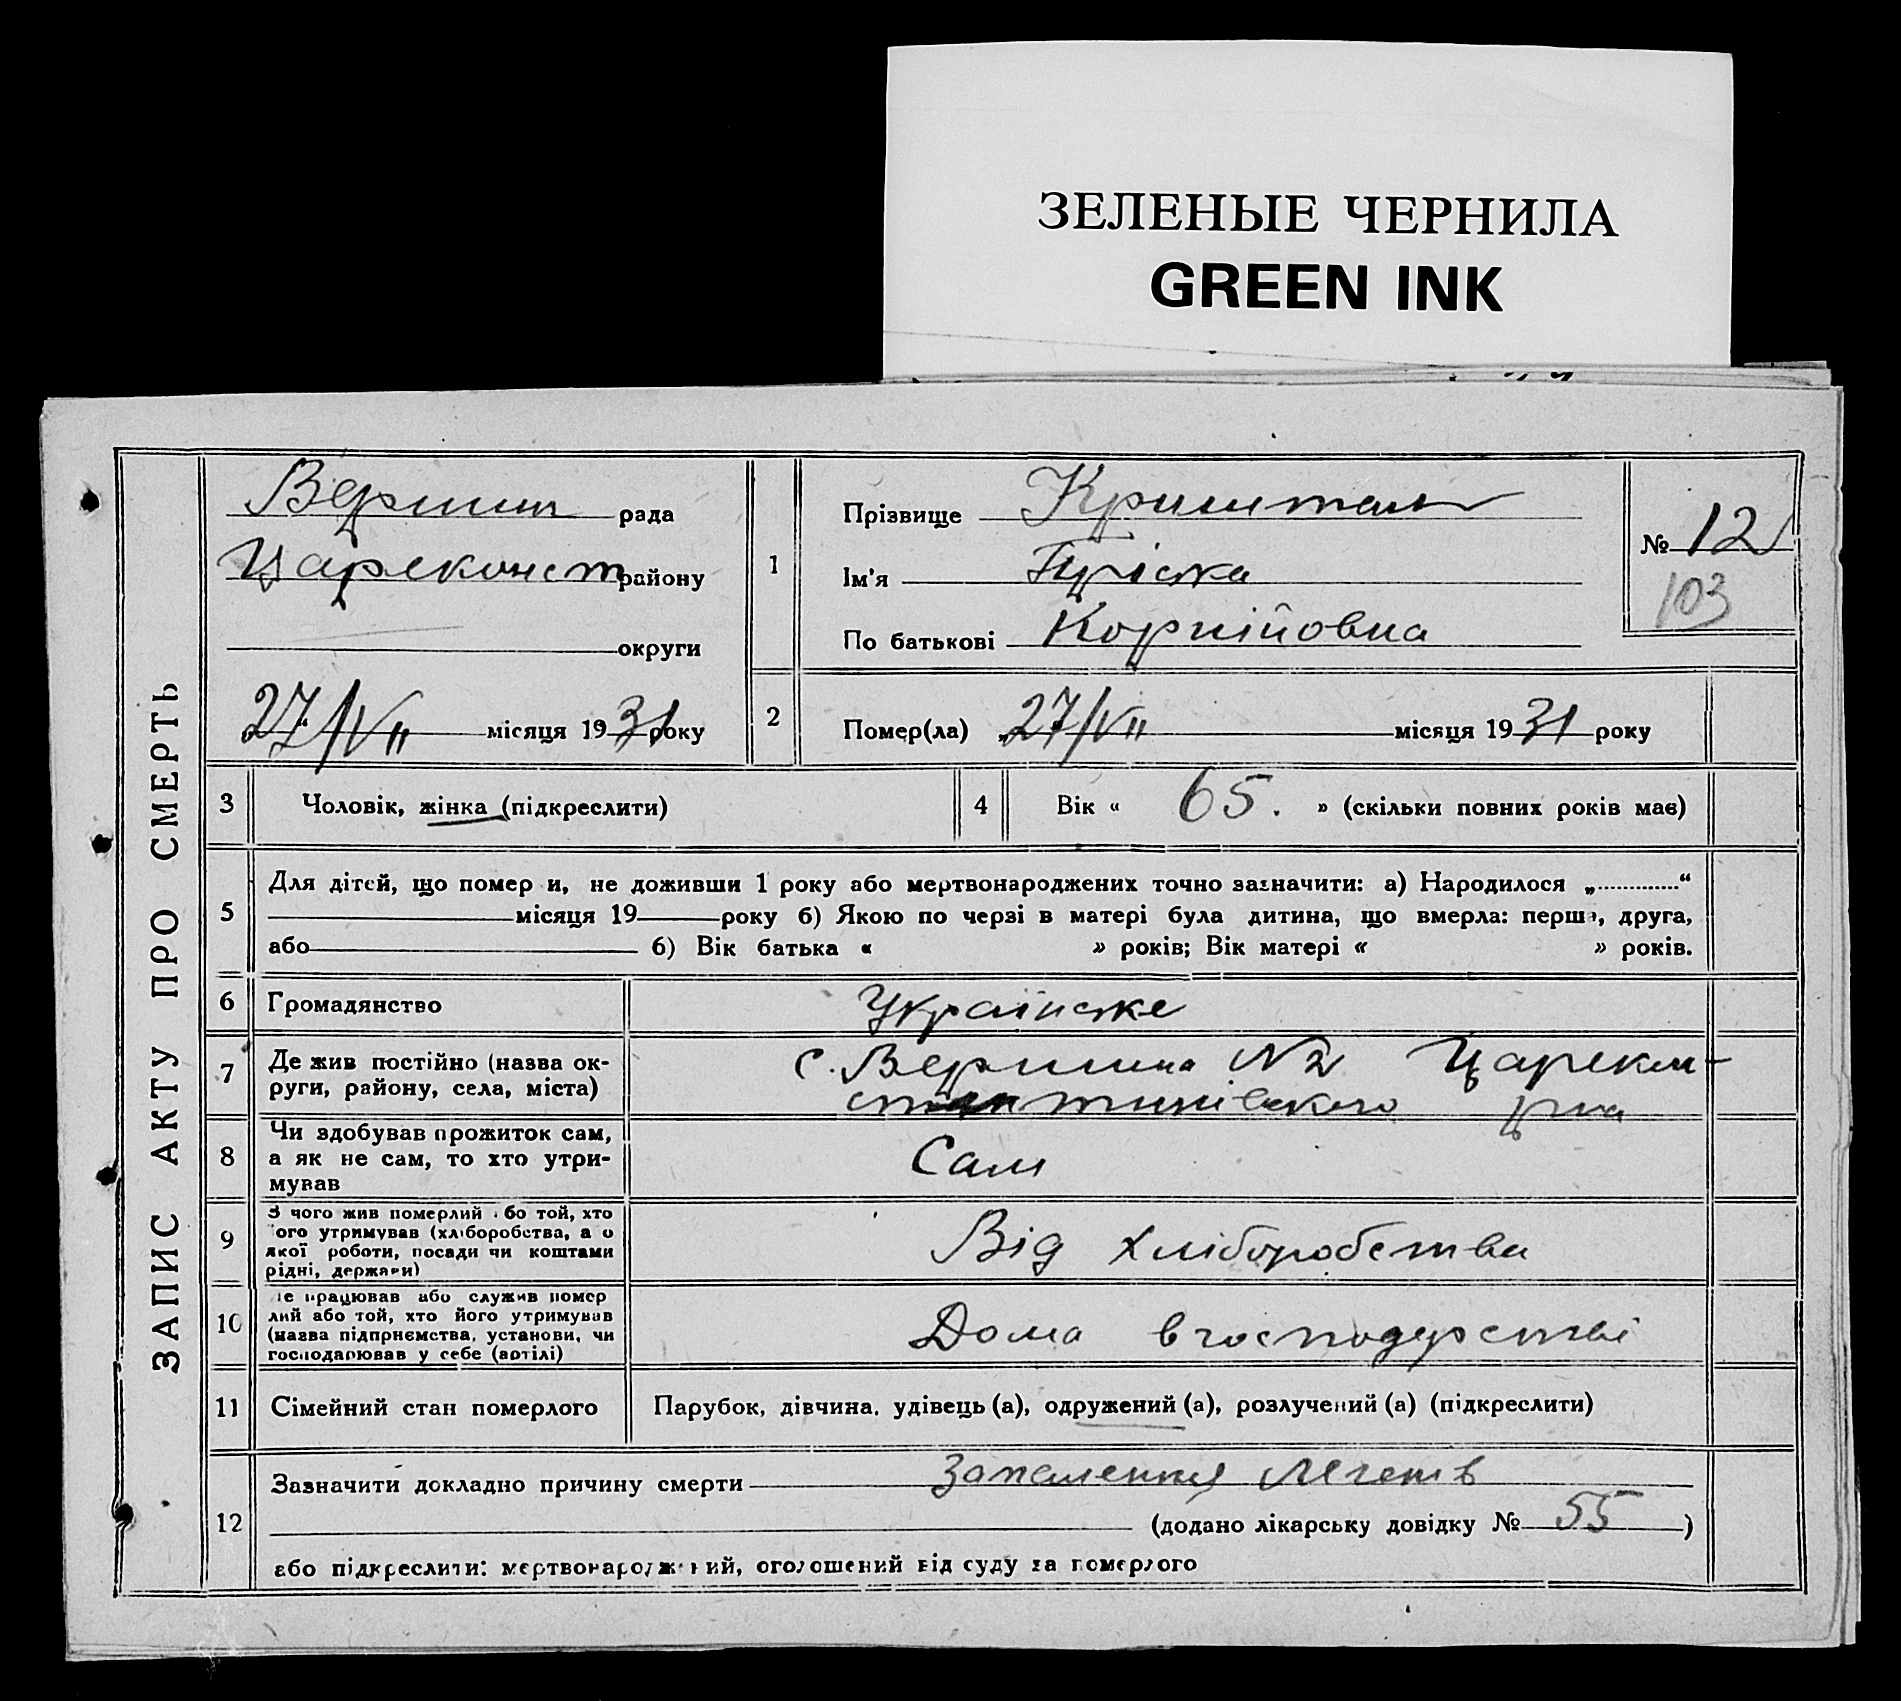 ЗЕЛЕНЫЕ ЧЕРНИЛА
GREEN INK
ЗАПИС АКТУ ПРО СМЕРТЬ
Вершин рада
Царекконст району
округи
27/VII місяця 1931 року
1
Прізвище Кришталь
Ім'я Пріська
По батькові Корнійовна
№ 12
103
2
Помер(ла) 27/VII місяця 1931 року
3 Чоловік, жінка (підкреслити)
4 Вік « 65. » (скільки повних років має)
5
Для дітей, що помер и, не доживши 1 року або мертвонароджених точно зазначити: а) Народилося „.............“
місяця 19 року б) Якою по черзі в матері була дитина, що вмерла: перша, друга,
або б) Вік батька « » років; Вік матері « » років.
6 Громадянство Українське
7
Де жив постійно (назва ок-
руги, району, села, міста)
с. Вершина N2 Царекон-
стантинівского р-на
8
Чи здобував прожиток сам,
а як не сам, то хто утри-
мував
Сам
9
З чого жив померлий або той, хто
ого утримував (хліборобства, а о
якої роботи, посади чи коштами
рідні, держави)
Від хліборобства
10
е працював або служив помер
лий або той, хто його утримував
(назва підприємства, установи, чи
господарював у себе (артілі)
Дома в господарстві
11 Сімейний стан померлого Парубок, дівчина, удівець (а), одружений (а), розлучений (а) (підкреслити)
12
Зазначити докладно причину смерти Запалення легенів
(додано лікарську довідку № 55)
або підкреслити: мертвонароджений, оголошений від суду за померлого